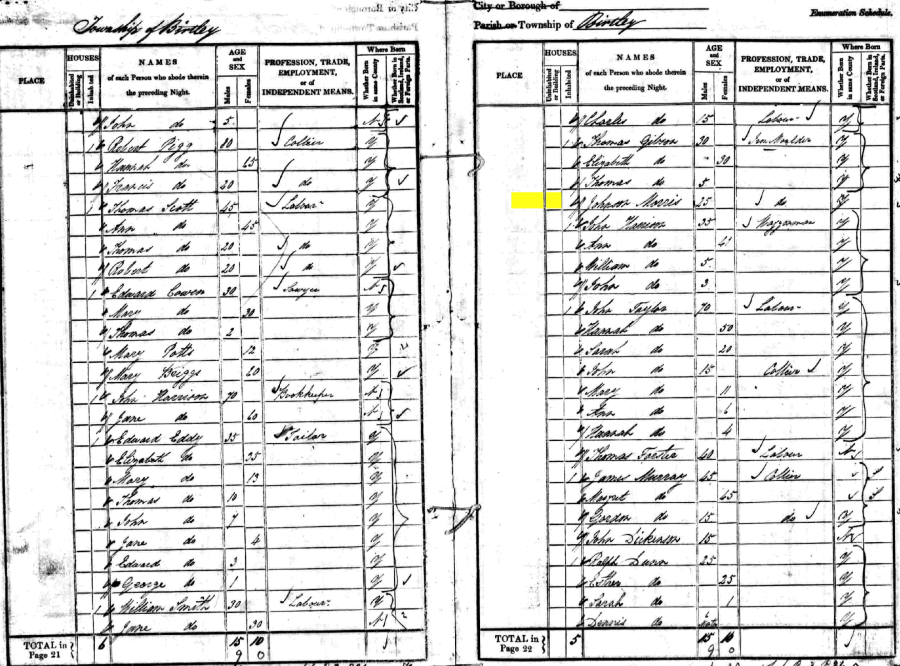 Township of Birtley
PLACE
HOUSES
Uninhabited or Building
Inhabited
NAMES
of each Person who abode therein
the preceding Night.
AGE
and
SEX
Males
Females
PROFESSION, TRADE,
EMPLOYMENT,
or of
INDEPENDENT MEANS.
Where Born
Whether Born in same County
Whether Born in Scotland, Ireland, or Foreign Parts.
John do 5 N
1 Robert Pigg 80 Collier Y
Hannah do 65 Y
Francis do 20 do Y
1 Thomas Scott 45 Labour Y
Ann do 45 Y
Thomas do 20 do Y
Robert do 20 do Y
1 Edward Cowen 30 Sawyer N
Mary do 30 Y
Thomas do 2 Y
Mary Potts 12 Y
Mary Briggs 60 Y
1 John Harrison 70 Bookkeeper N
Jane do 60 N
1 Edward Eddy 35 Tailor Y
Elizabeth do 35 Y
Mary do 13 Y
Thomas do 10 Y
John do 7 Y
Jane do 4 Y
Edward do 3 Y
George do 1 Y
1 William Smith 30 Labour Y
Jane do 30 N
TOTAL in
Page 21
6 15 10
9 0
City or Borough of
Parish or Township of Birtley
Enumeration Schedule.
PLACE
HOUSES
Uninhabited or Building
Inhabited
NAMES
of each Person who abode therein
the preceding Night.
AGE
and
SEX
Males
Females
PROFESSION, TRADE,
EMPLOYMENT,
or of
INDEPENDENT MEANS.
Where Born
Whether Born in same County
Whether Born in Scotland, Ireland, or Foreign Parts.
Charles do 15 Labour Y
1 Thomas Gibson 30 Iron Moulder Y
Elizabeth do 30 Y
Thomas do 5 Y
Johnson Morris 25 do Y
1 John Harrison 35 Waggonman Y
Ann do 41 Y
William do 5 Y
John do 3 Y
1 John Taylor 70 Labour Y
Hannah do 50 Y
Sarah do 20 Y
John do 15 Collier Y
Mary do 11 Y
Ann do 6 Y
Hannah do 4 Y
Thomas Forster 40 Labour N
1 James Murray 45 Collier
Margret do 45
Gordon do 15 do Y
John Dickinson 15 N
1 Ralph Dunn 25 Y
Esther do 25 Y
Sarah do 1 Y
Dennis do 6 Y
TOTAL in
Page 22
5 15 10
9 0